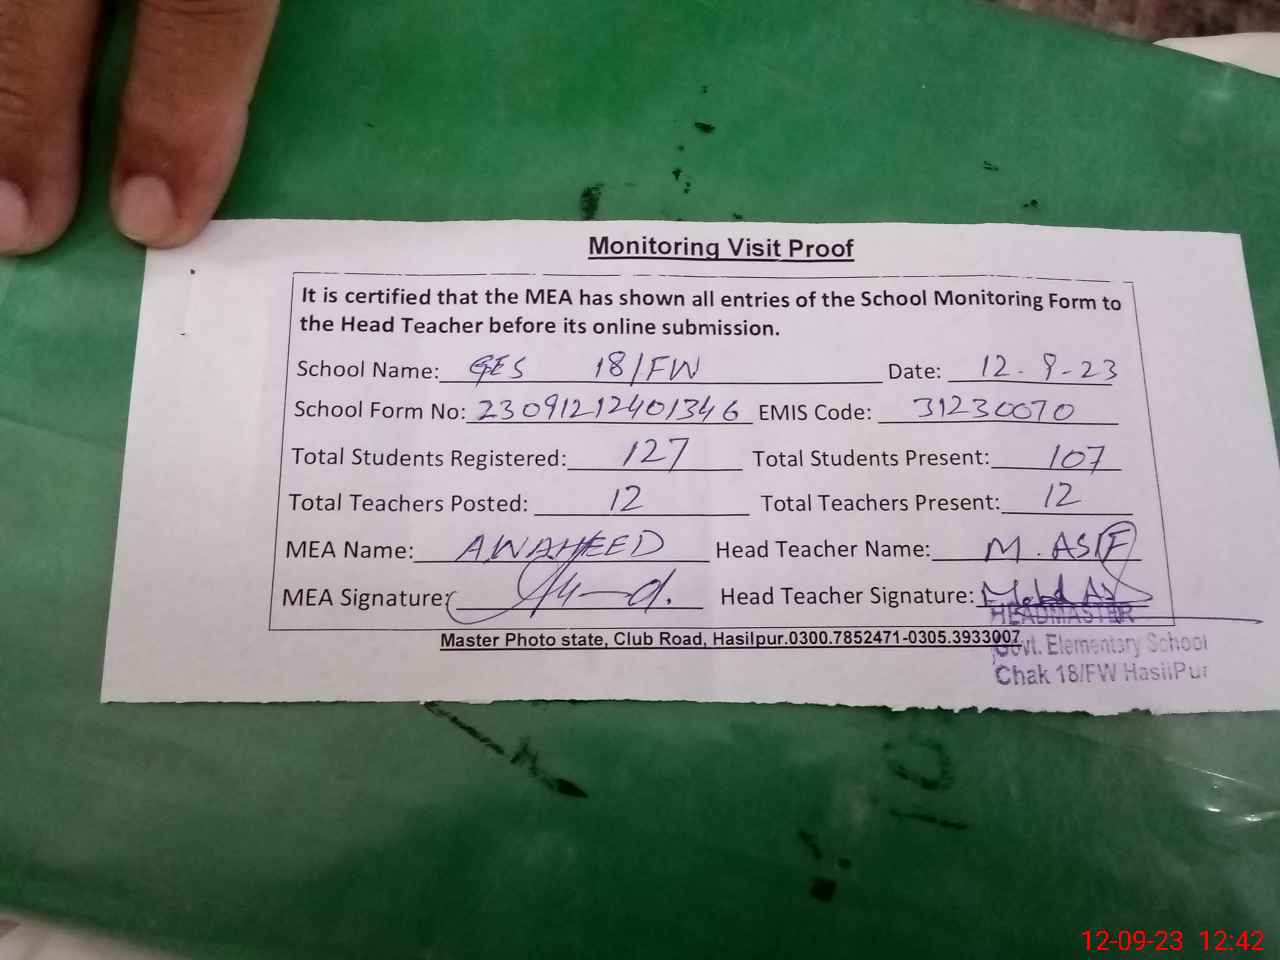 Monitoring Visit Proof
It is certified that the MEA has shown all entries of the School Monitoring Form to
the Head Teacher before its online submission.
School Name: GES 18/FW Date: 12.9-23
School Form No: 23091212401346 EMIS Code: 31230070
Total Students Registered: 127 Total Students Present: 107
Total Teachers Posted: 12 Total Teachers Present: 12
MEA Name: AWAHEED Head Teacher Name: M. ASIF
MEA Signature: Head Teacher Signature:
HEADMASTER
Master Photo state, Club Road, Hasilpur.0300.7852471-0305.3933007
Govt. Elementary School
Chak 18/FW HasilPur
12-09-23 12:42